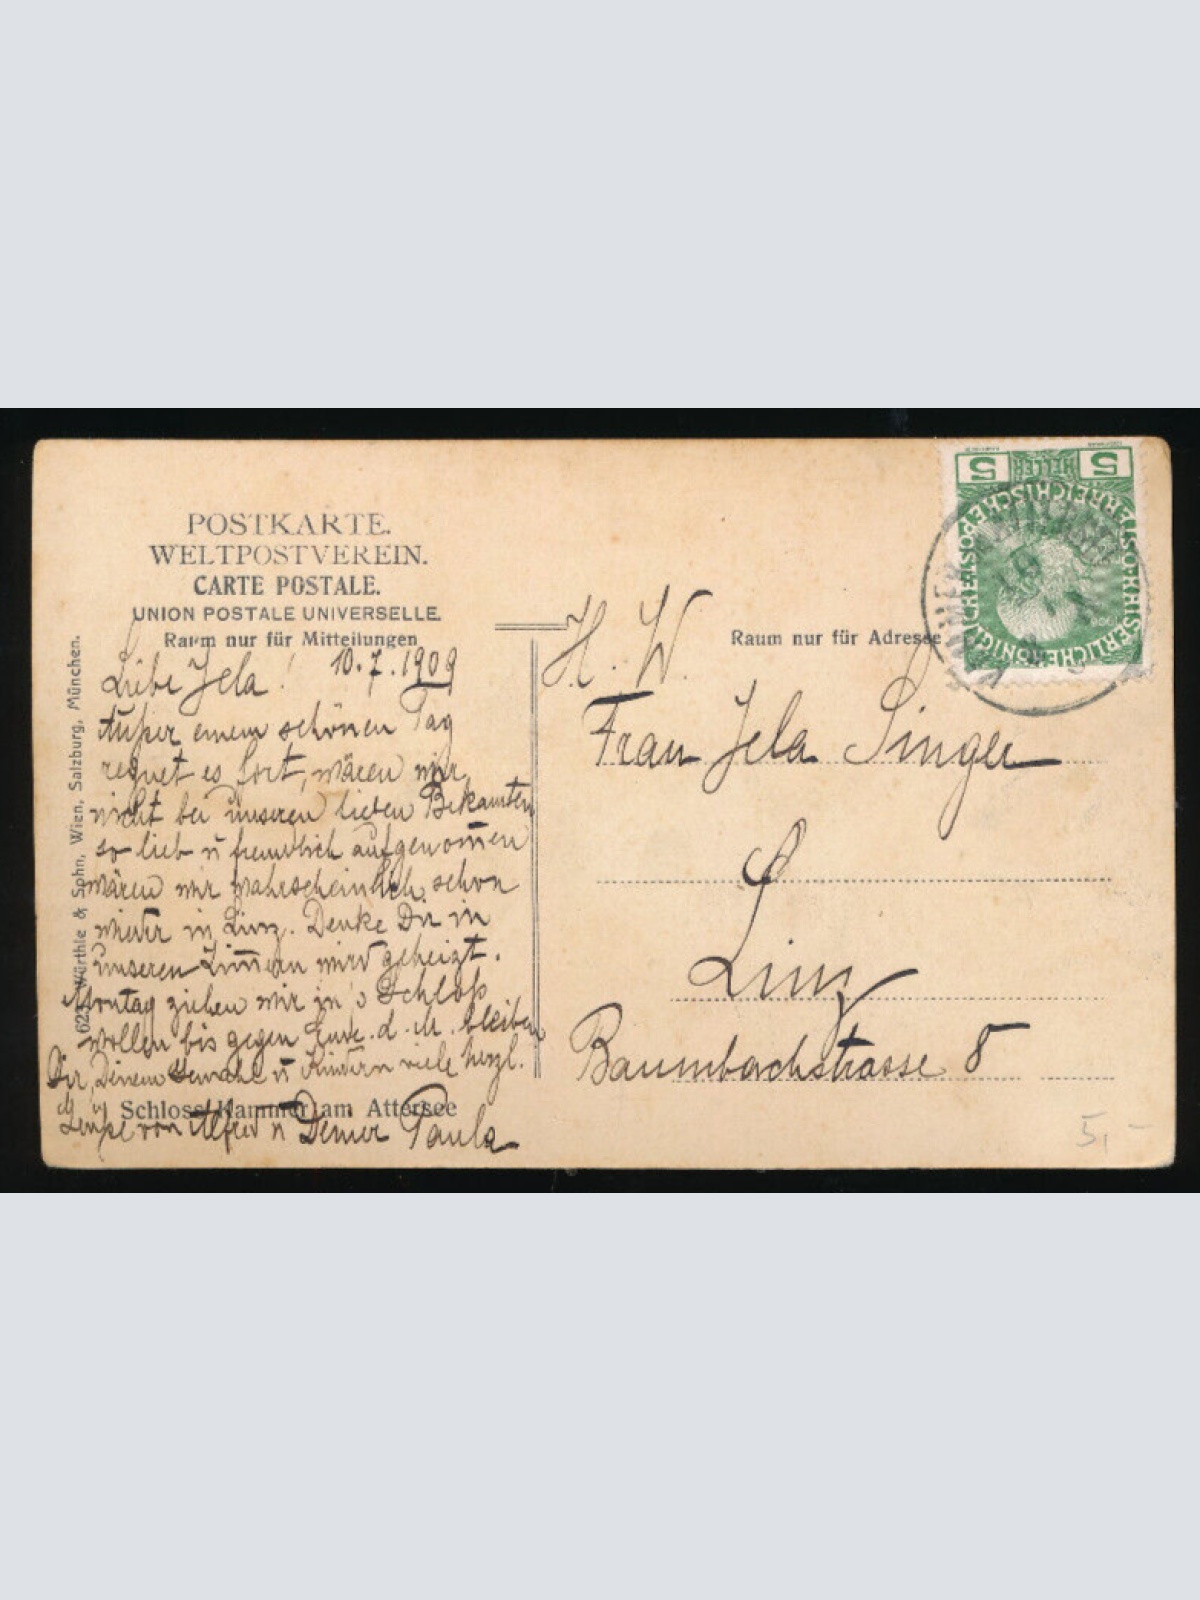 POSTKARTE.
WELTPOSTVEREIN.
CARTE POSTALE.
UNION POSTALE UNIVERSELLE.
Raum nur für Mitteilungen
10.7.1909
Liebe Jela!
Außer einem schönen Tag
regnet es fort, wären wir
nicht bei unseren lieben Bekannten
so lieb u freundlich aufgenom̅en
wären wir wahrscheinlich schon
wieder in Linz. Denke Dir in
unseren Zim̅ern wird geheizt.
Montag ziehen wir in's Schloß
wollen bis gegen Ende d. M. bleiben
Dir, Deinem Gemahl u Kindern viele herzl.
Schloss Kammer am Attersee
von Alfred u Deiner Paula
623 Würthle & Sohn, Wien, Salzburg, München.
H. W.
Raum nur für Adresse
Frau Jela Singer
Linz
Baumbachstrasse 8
5 HELLER 5
KAISERLICHE KÖNIGLICHE ÖSTERREICHISCHE POST
5,-